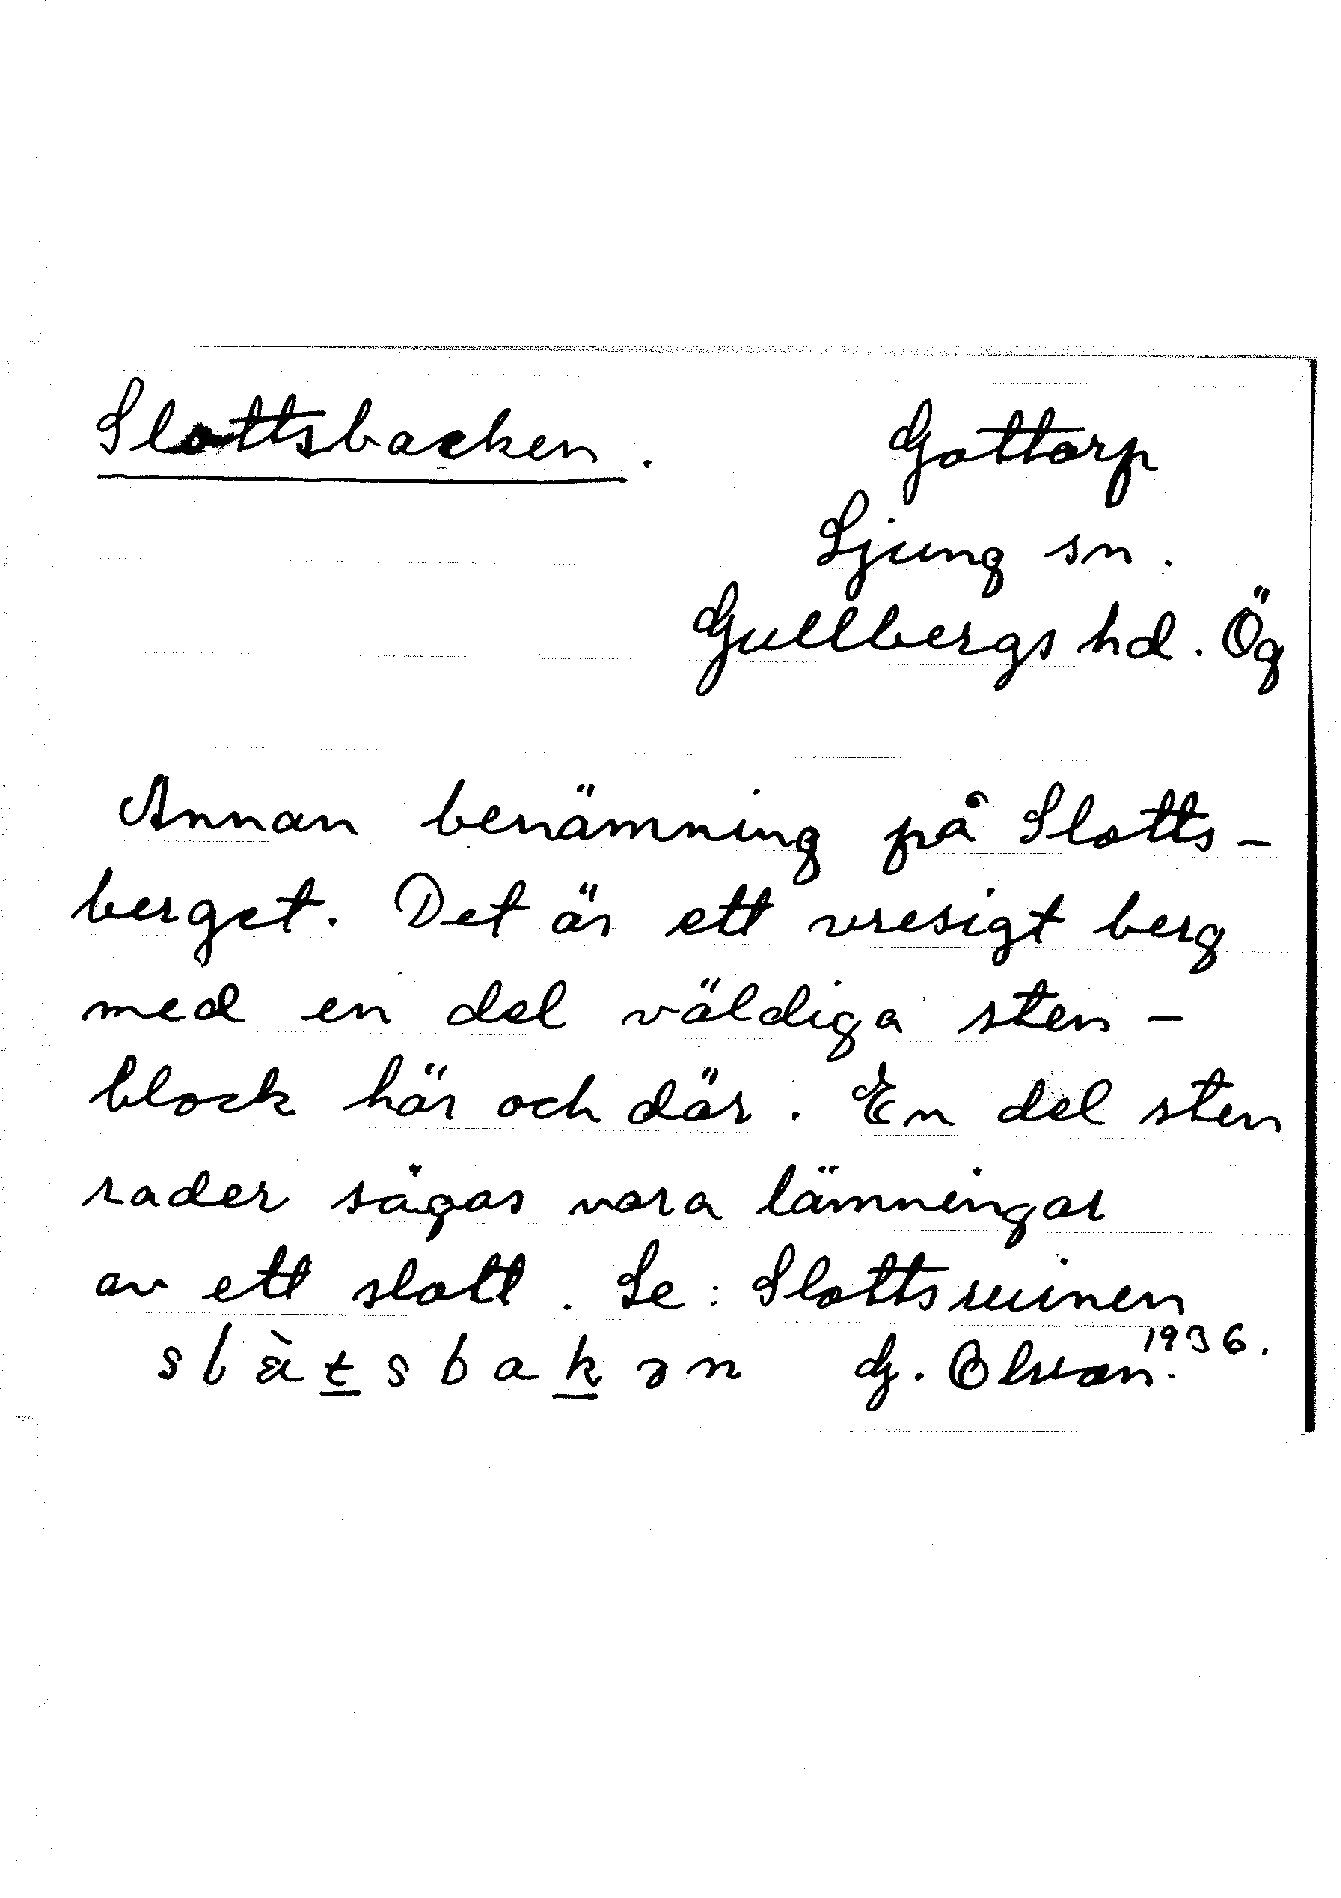 Slottsbacken.
Gottorp
Ljung sn.
Gullbergs hd. Ög
Annan benämning på Slotts-
berget. Det är ett vresigt berg
med en del väldiga sten-
block här och där. En del sten
rader sägas vara lämningar
av ett slott. Se: Slottsruinen
1936.
G. Olsson.